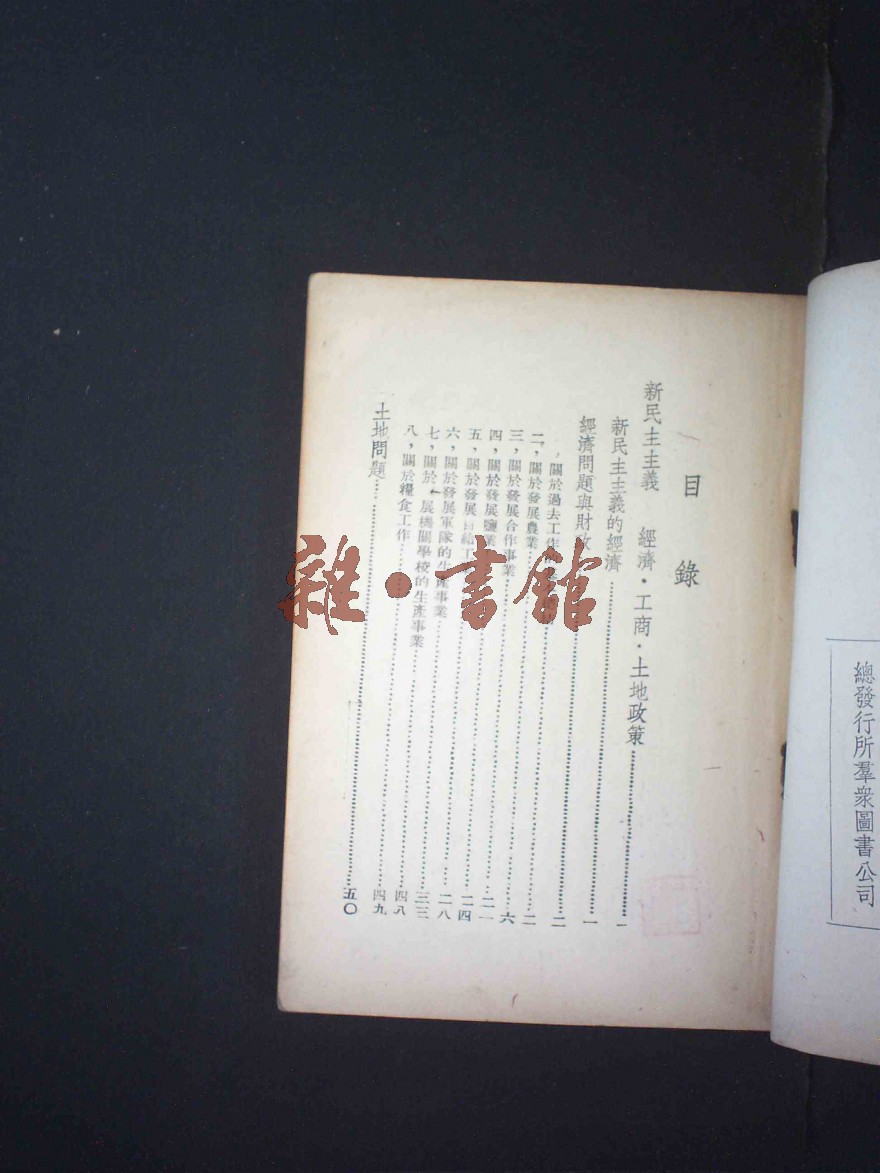 總發行所羣衆圖書公司
目錄
新民主主義 經濟·工商·土地政策……一
新民主主義的經濟……一
經濟問題與財政……二
，關於過去工作……二
二，關於發展農業……六
三，關於發展合作事業……二一
四，關於發展鹽業……二四
五，關於發展自給工……二八
六，關於發展軍隊的生產事業……三三
七，關於 展機關學校的生產事業……四八
八，關於糧食工作……四九
土地問題……五〇
雜·書館